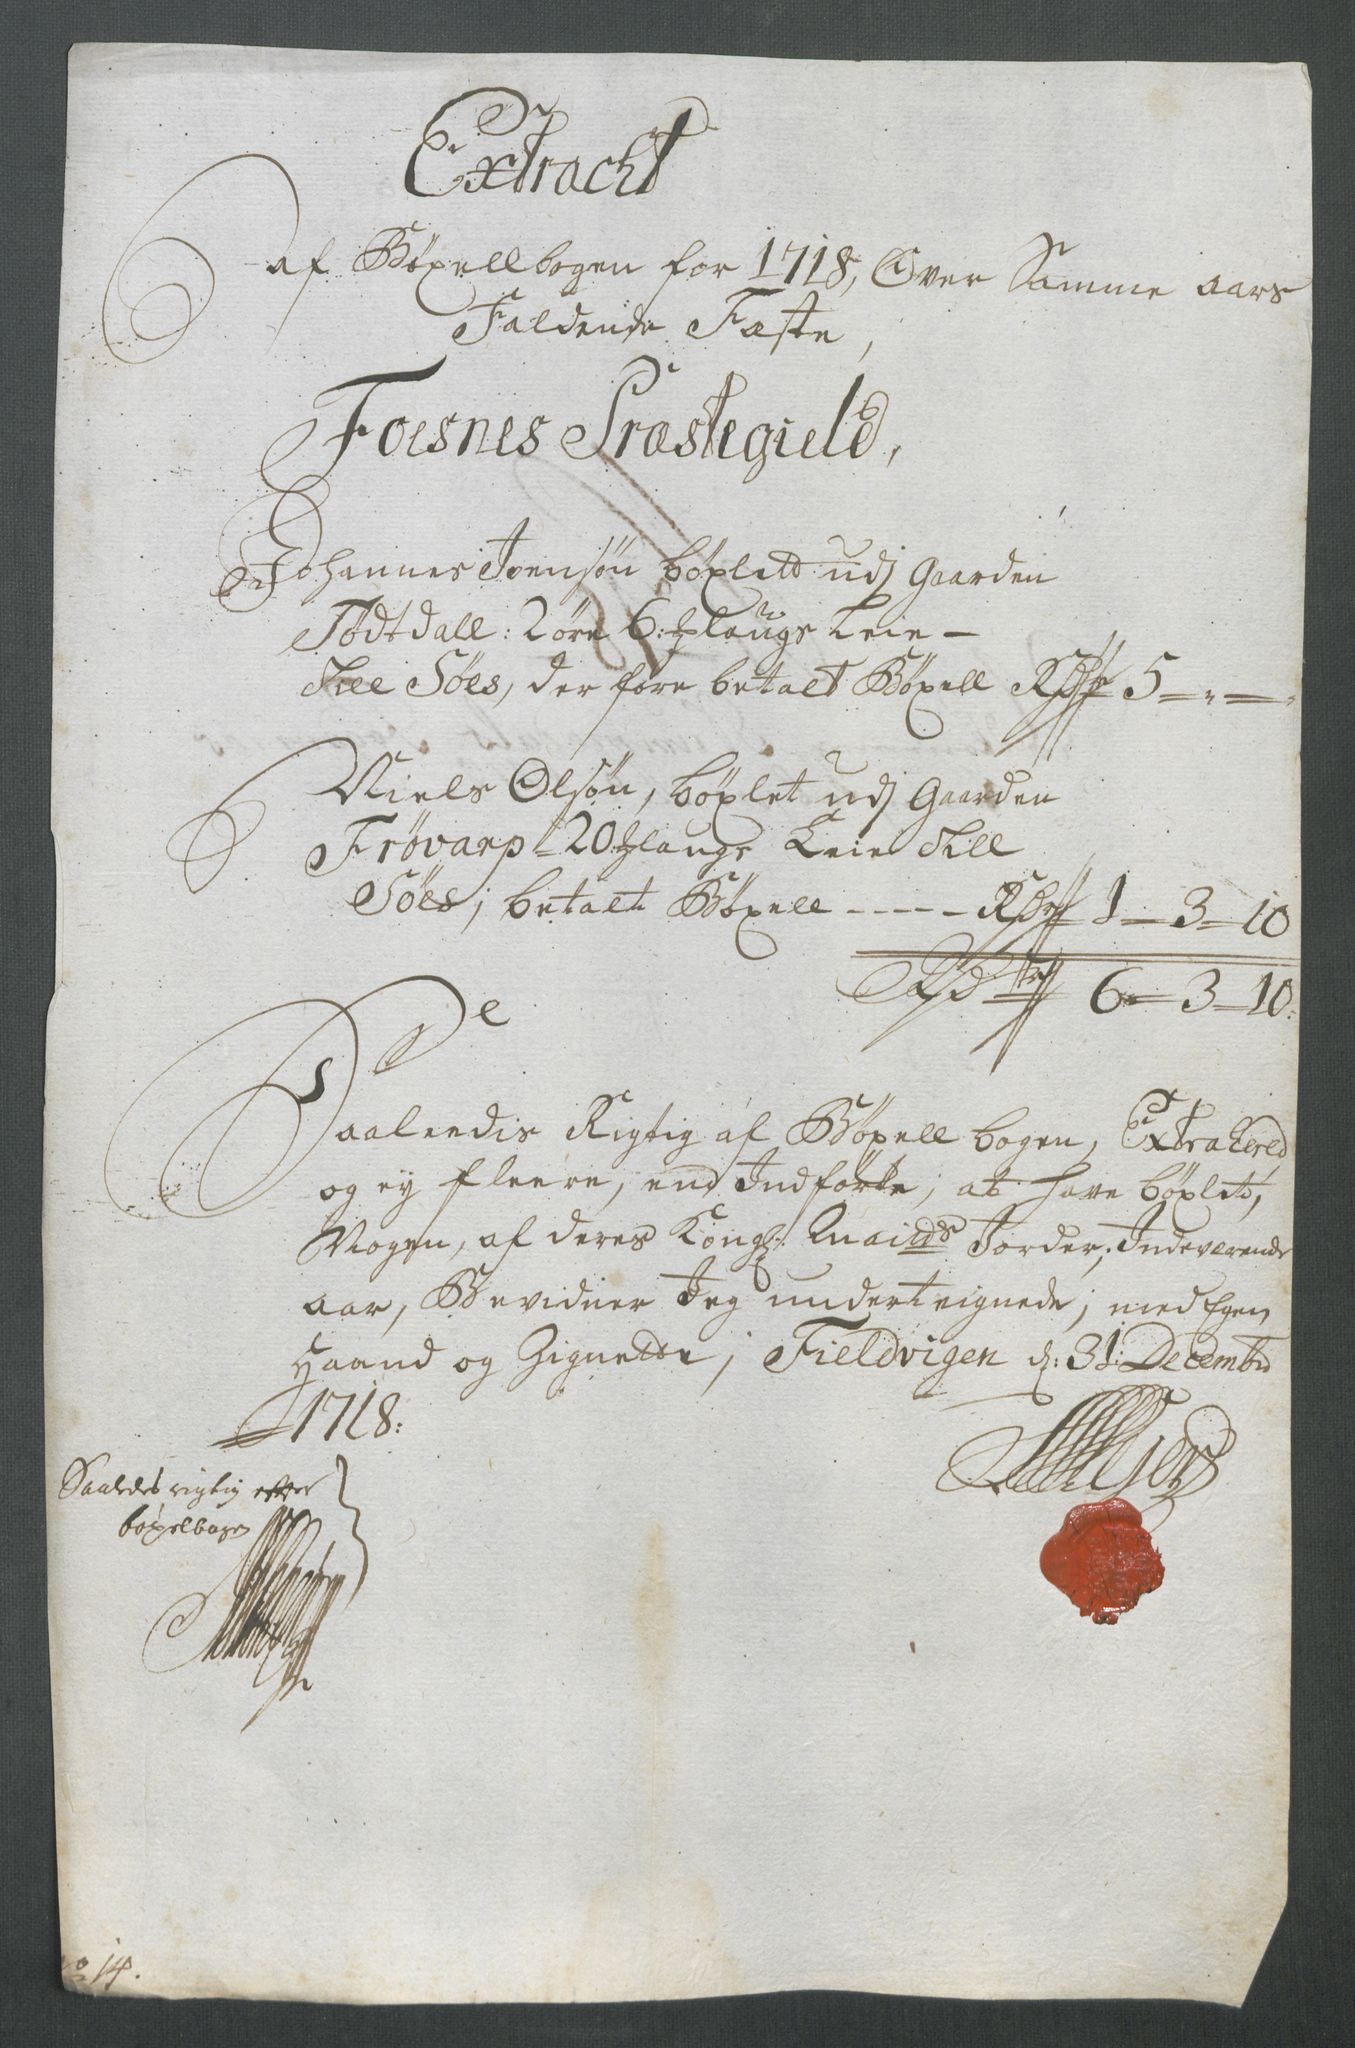 Extracht
af Böxellbogen for 1718, Over Samme aars
Faldende Fæste,
Foesnes Præstegield,
Johannes Joensøn böxlett udj Gaarden
Tødtdall: 2 öre 6: laugs Leie –
till Söes, der fore betalt Böxell Rdr 5 – „ – „
Niels Olsøn, böxlet udj Gaarden
Frövarp – 20 laugs Leie till
Söes; betalt Böxell ---- Rdr 1 – 3 – 10
Rdr 6 – 3 – 10:
Saaledis Rigtig af Böxell bogen, Extraherld
og ey fleere, end Indförte, at have böxlet,
Nogen, af deres Kongl: Maitts Jorder, Indeværende
aar, Bevidner Jeg underteignede; med Egen
Haand og Zignette; Fieldvigen d: 31: Decembr
1718:
Saaledes rigtig efter
böxelbogen
No 14.